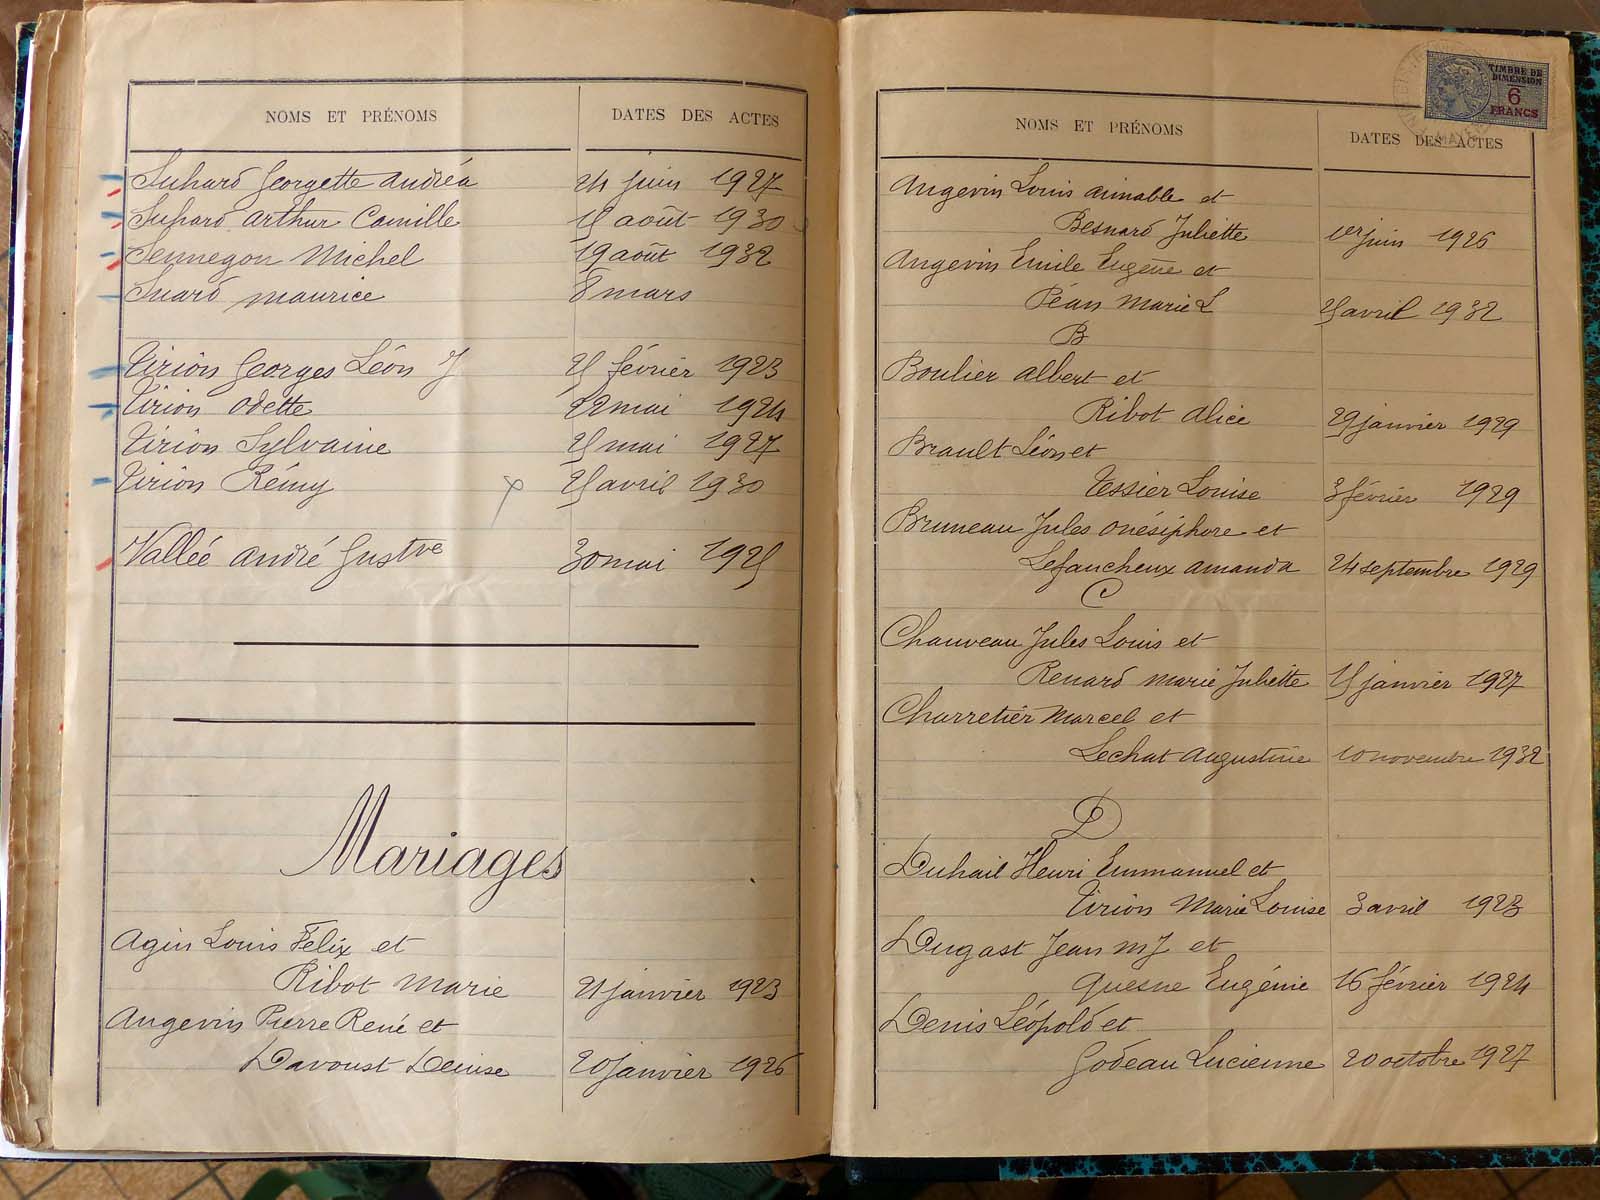 NOMS ET PRÉNOMS DATES DES ACTES
Suhard Georgette Andréa 24 juin 1927
Suhard Arthur Camille 15 août 1930
Sennegon Michel 19 août 1932
Suard Maurice 8 mars
Tirion Georges Léon J 25 février 1923
Tirion Odette 22 mai 1924
Tirion Sylvaine 25 mai 1927
Tirion Rémy 25 avril 1930
Vallée André Gustve 30 mai 1925
Mariages
Agin Louis Félix et
Ribot Marie 21 janvier 1923
Angevin Pierre René et
Davoust Denise 20 janvier 1926
TIMBRE DE
DIMENSION
6
FRANCS
NOMS ET PRÉNOMS DATES DES ACTES
Angevin Louis Aimable et
Besnard Juliette 1er juin 1926
Angevin Emile Eugène et
Péan Marie L 25 avril 1932
B
Boulier Albert et
Ribot Alice 29 janvier 1929
Brault Léon et
Tessier Louise 3 février 1929
Bruneau Jules Onésiphore et
Lefaucheux Amanda 24 septembre 1929
C
Chauveau Jules Louis et
Renard Marie Juliette 15 janvier 1927
Charretier Marcel et
Lechat Augustine 10 novembre 1932
D
Duhail Henri Emmanuel et
Tirion Marie Louise 3 avril 1923
Dugast Jean MJ et
Quesne Eugénie 16 février 1924
Denis Léopold et
Godeau Lucienne 20 octobre 1927